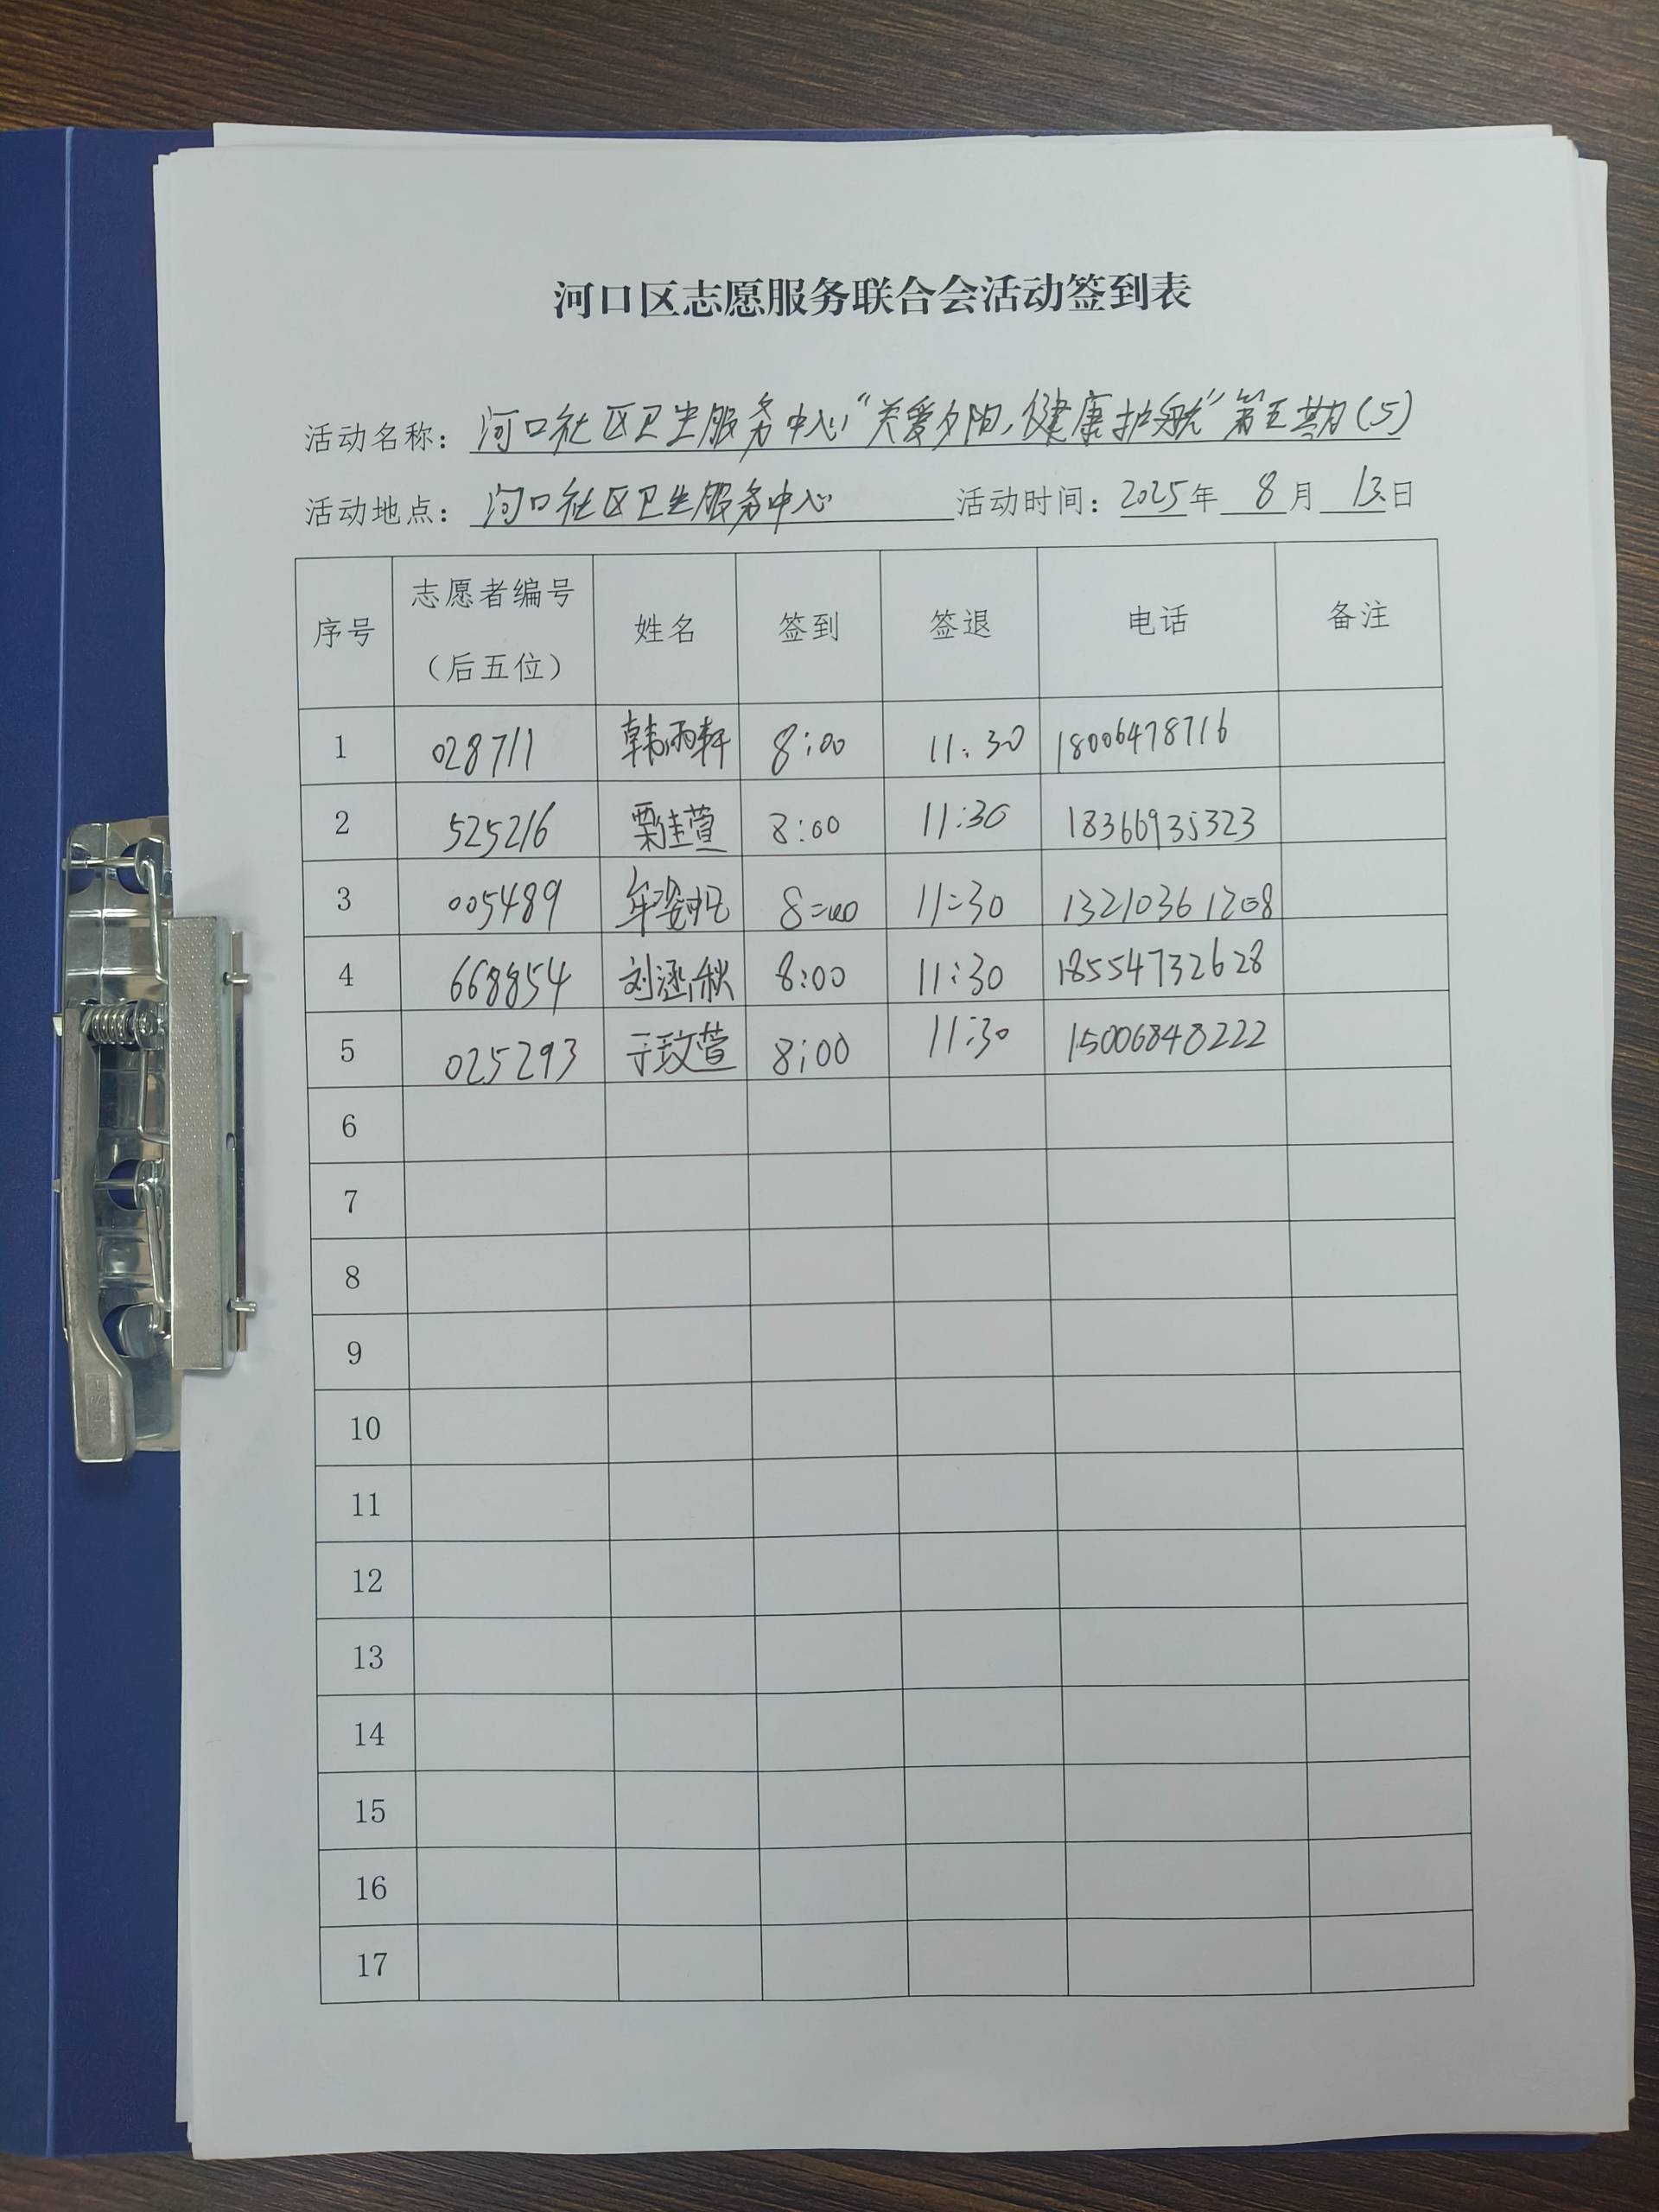 河口区志愿服务联合会活动签到表
活动名称：河口社区卫生服务中心“关爱夕阳，健康护航”第五期（5）
活动地点：河口社区卫生服务中心 活动时间：2025年 8月 13日
序号 志愿者编号（后五位） 姓名 签到 签退 电话 备注
1 028711 韩雨轩 8:00 11:30 18006478716
2 525216 栗佳萱 8:00 11:30 18366935323
3 005489 牟姿 8:00 11:30 13210361208
4 668854 刘涵秋 8:00 11:30 18554732628
5 025293 于玟萱 8:00 11:30 15006848222
6
7
8
9
10
11
12
13
14
15
16
17